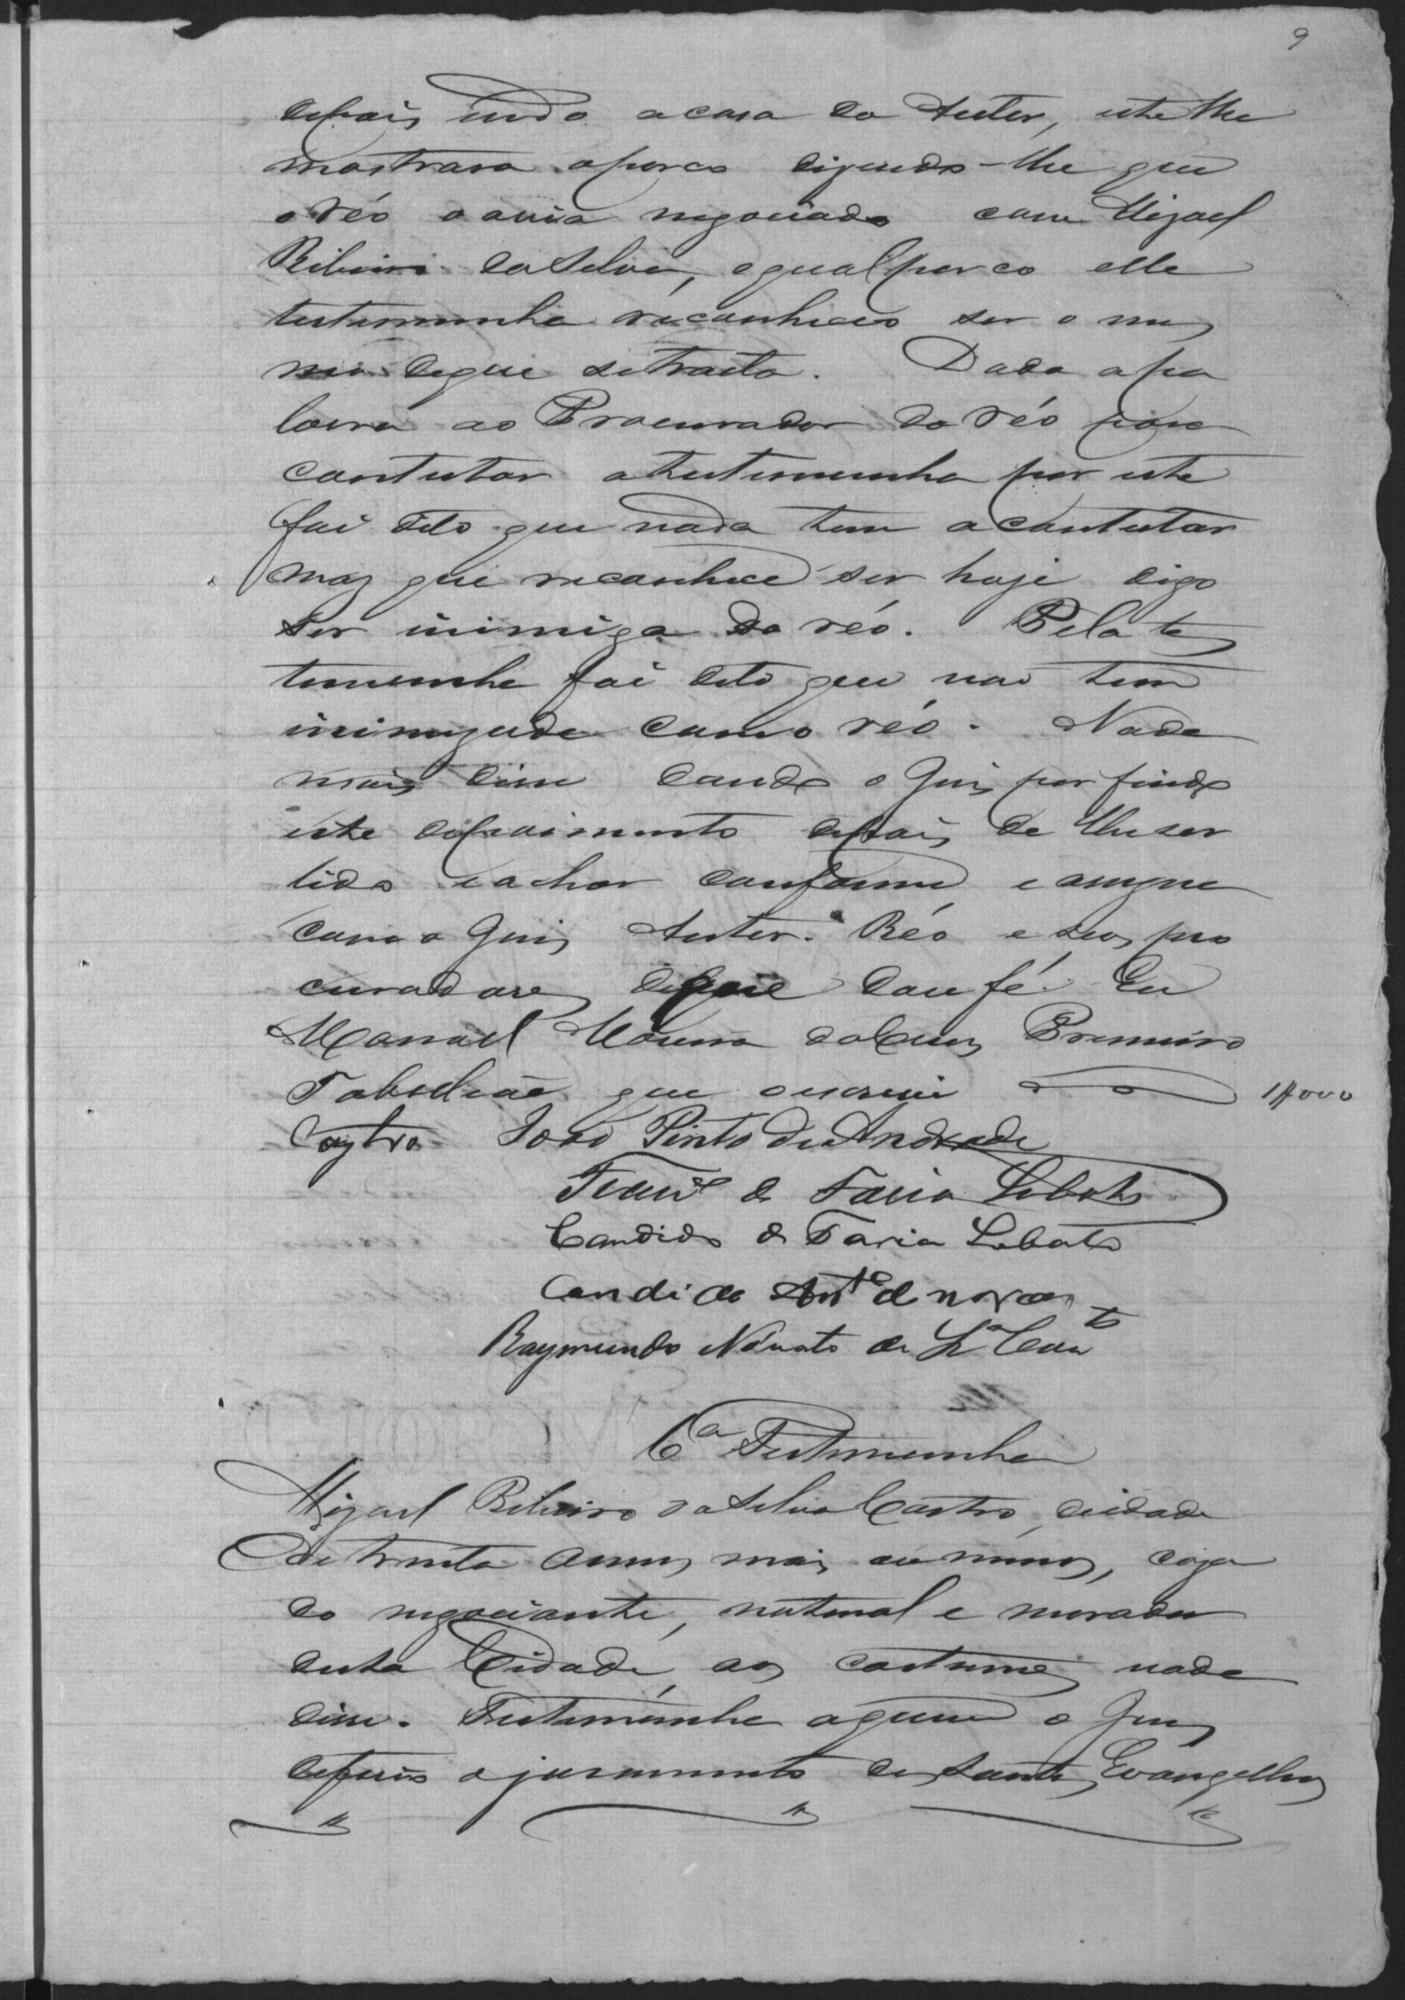 9
depois indo a casa do Auter, este lhe
mostrara o porco disendo-lhe que
o réo o avia negociado com Migael
Ribeiro da Silva, o qual porco elle
testemunha reconheceo ser o mes
mo de que se tracta. Dada a pa
lavra ao Procurador do réo para
contestar a testemunha por este
foi dito que nada tem a contestar
mas que reconhece ser hoje digo
ser inimiga do réo. Pela tes
temunha foi dito que nao tem
inimizade com o réo. Nada
mais disse dando o Juis por findo
este depoimento depois de lhe ser
lido e achar conforme e assigna
com o Juis, Auter. Réo e seos pro
curadores, de que dou fé. Eu
Manoel Moura da Cruz Premeiro
Tabelleão que escrevi
1$000
Castro João Pinto de Andrade
Franco de Faria Lobato
Candido de Faria Lobato
Candido Anto de novaes
Raymundo Nonato de Sa Couto
6a Testemunha
Migael Ribeiro da Silva Castro, deidade
de trinta annos mais ou menos, caza
do negociante, natural e morador
desta Cidade, aos costumes nada
disse. Testemunha aquem o Juis
deferio o juramento dos Santos Evangelhos